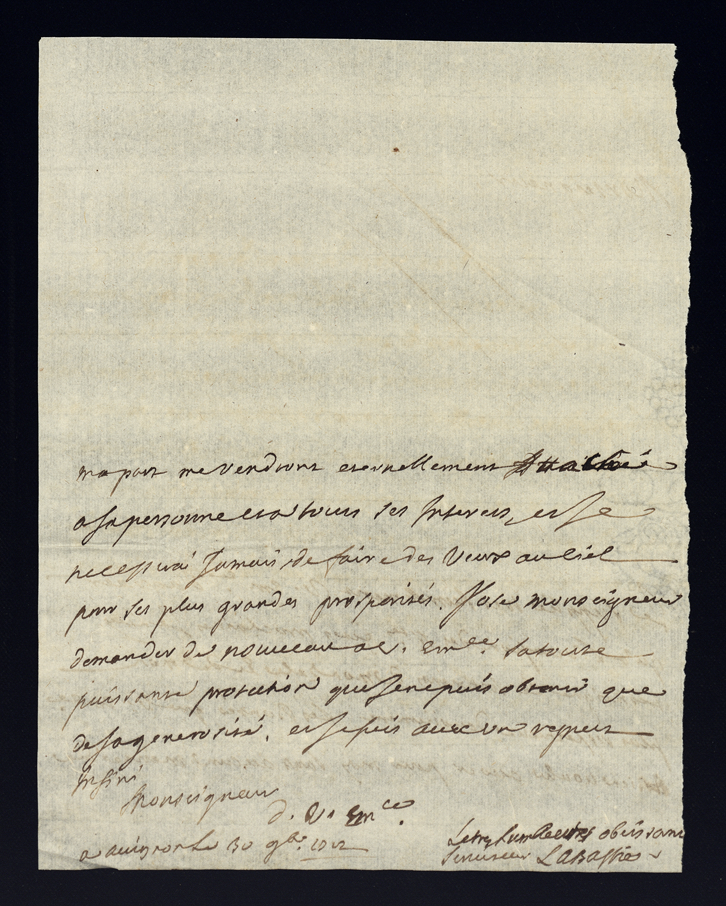 ma part me rendront eternellement attaché
a sa personne et a tous ses Interets, et Je
ne cesserai Jamais de faire des Vœux au Ciel
pour ses plus grandes prosperités. J'ose monseigneur
demander de nouveau a V. Em.ce sa toute
puissante protection que Je ne puis obtenir que
de sa generosité. et Je suis avec un respect
Infini
Monseigneur
d. V. Em.ce
a avignon le 30 9bre
Le tres humble et tres obeissant
serviteur